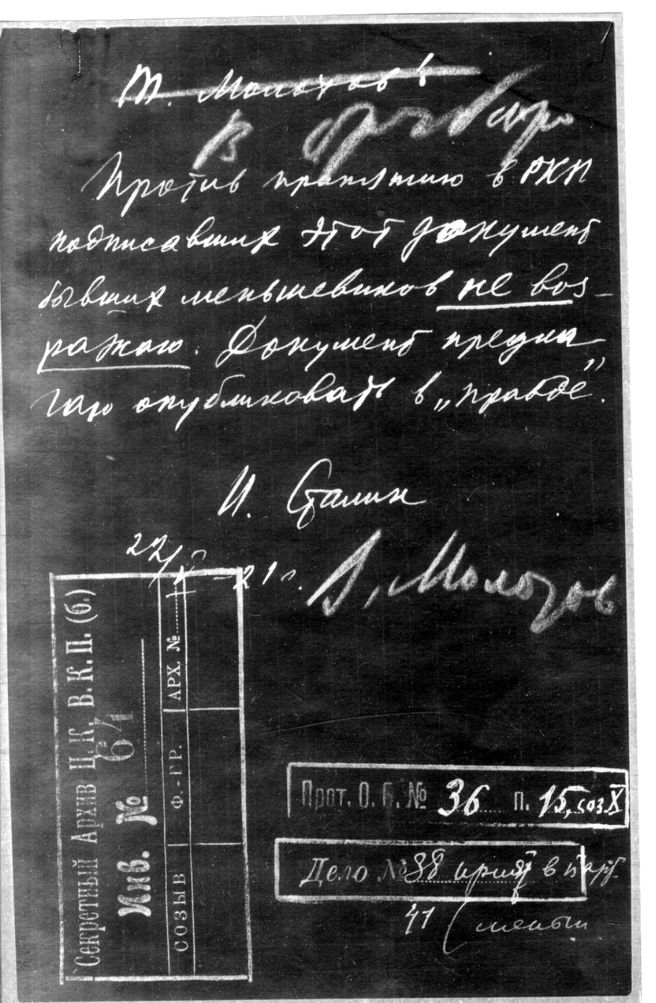 Т. Молотов
В оргбюро
Против принятию в РКП
подписавших этот документ
бывших меньшевиков не воз-
ражаю. Документ предла-
гаю опубликовать в „Правде”.
И. Сталин
22/ -21 г.
В. Молотов
Секретный Архив Ц. К. В.К.П. (б.)
Инв. № 64
СОЗЫВ Ф.-ГР. АРХ. №
Прот. О. Б. № 36 п. 15, соз. X
Дело № 88 в парт.
41 (меньш